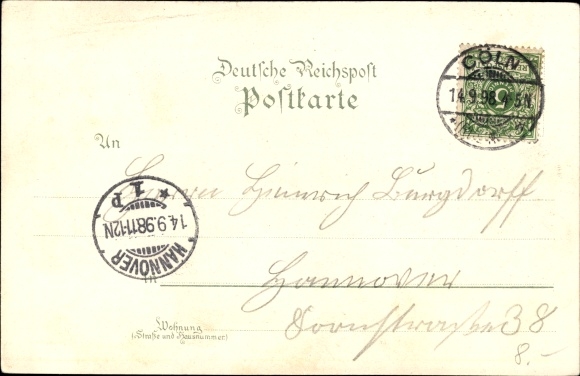 Deutsche Reichspost
Postkarte
CÖLN
14.9.98
An
Herrn Heinrich Burgdorff
HANNOVER
14.9.98.11-12N
1.p
in
Hannover
38
Wohnung
(Straße und Hausnummer)
8.-